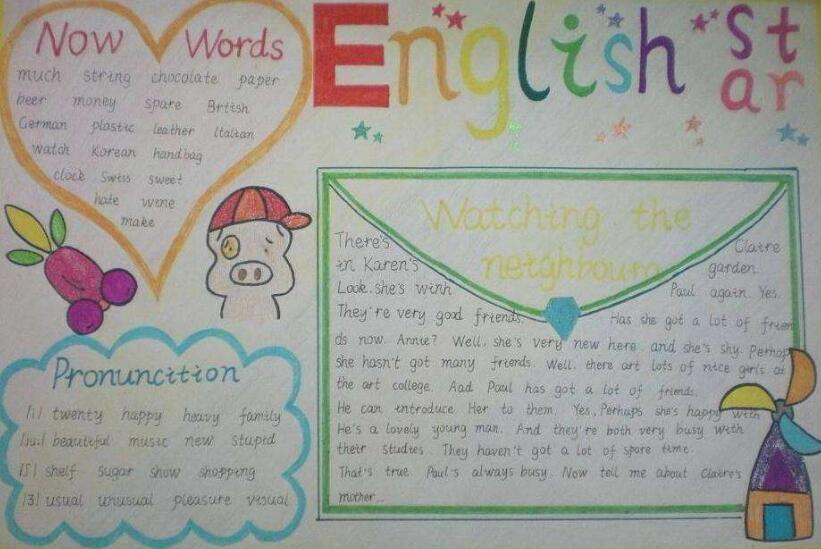 English
St
ar
Now Words
much string chocolate paper
beer money spare Brtish
German plastic leather ltalian
watch Korean handbag
clock Swiss sweet
hate wine
make
Pronuncition
/i/ twenty happy heavy family
/ju:/ beautiful music new stupid
/ʃ/ shelf sugar show shopping
/ʒ/ usual unusual pleasure visual
Watching the
neighbours
There's Claire
in Karen's garden.
Look. she's winh Paul again. Yes.
They're very good friends. Has she got a lot of frien
ds now. Annie? Well, she's very new here and she's shy. Perhap
she hasn't got many friends. Well. there art lots of nice girls at
the art college. Aad Paul has got a lot of friends.
He can introduce Her to them. Yes, Perhaps she's happy with
He's a lovely young man. And they're both very busy with
their studies. They haven't got a lot of spare time.
That's true. Paul's always busy. Now tell me about Claire's
mother...